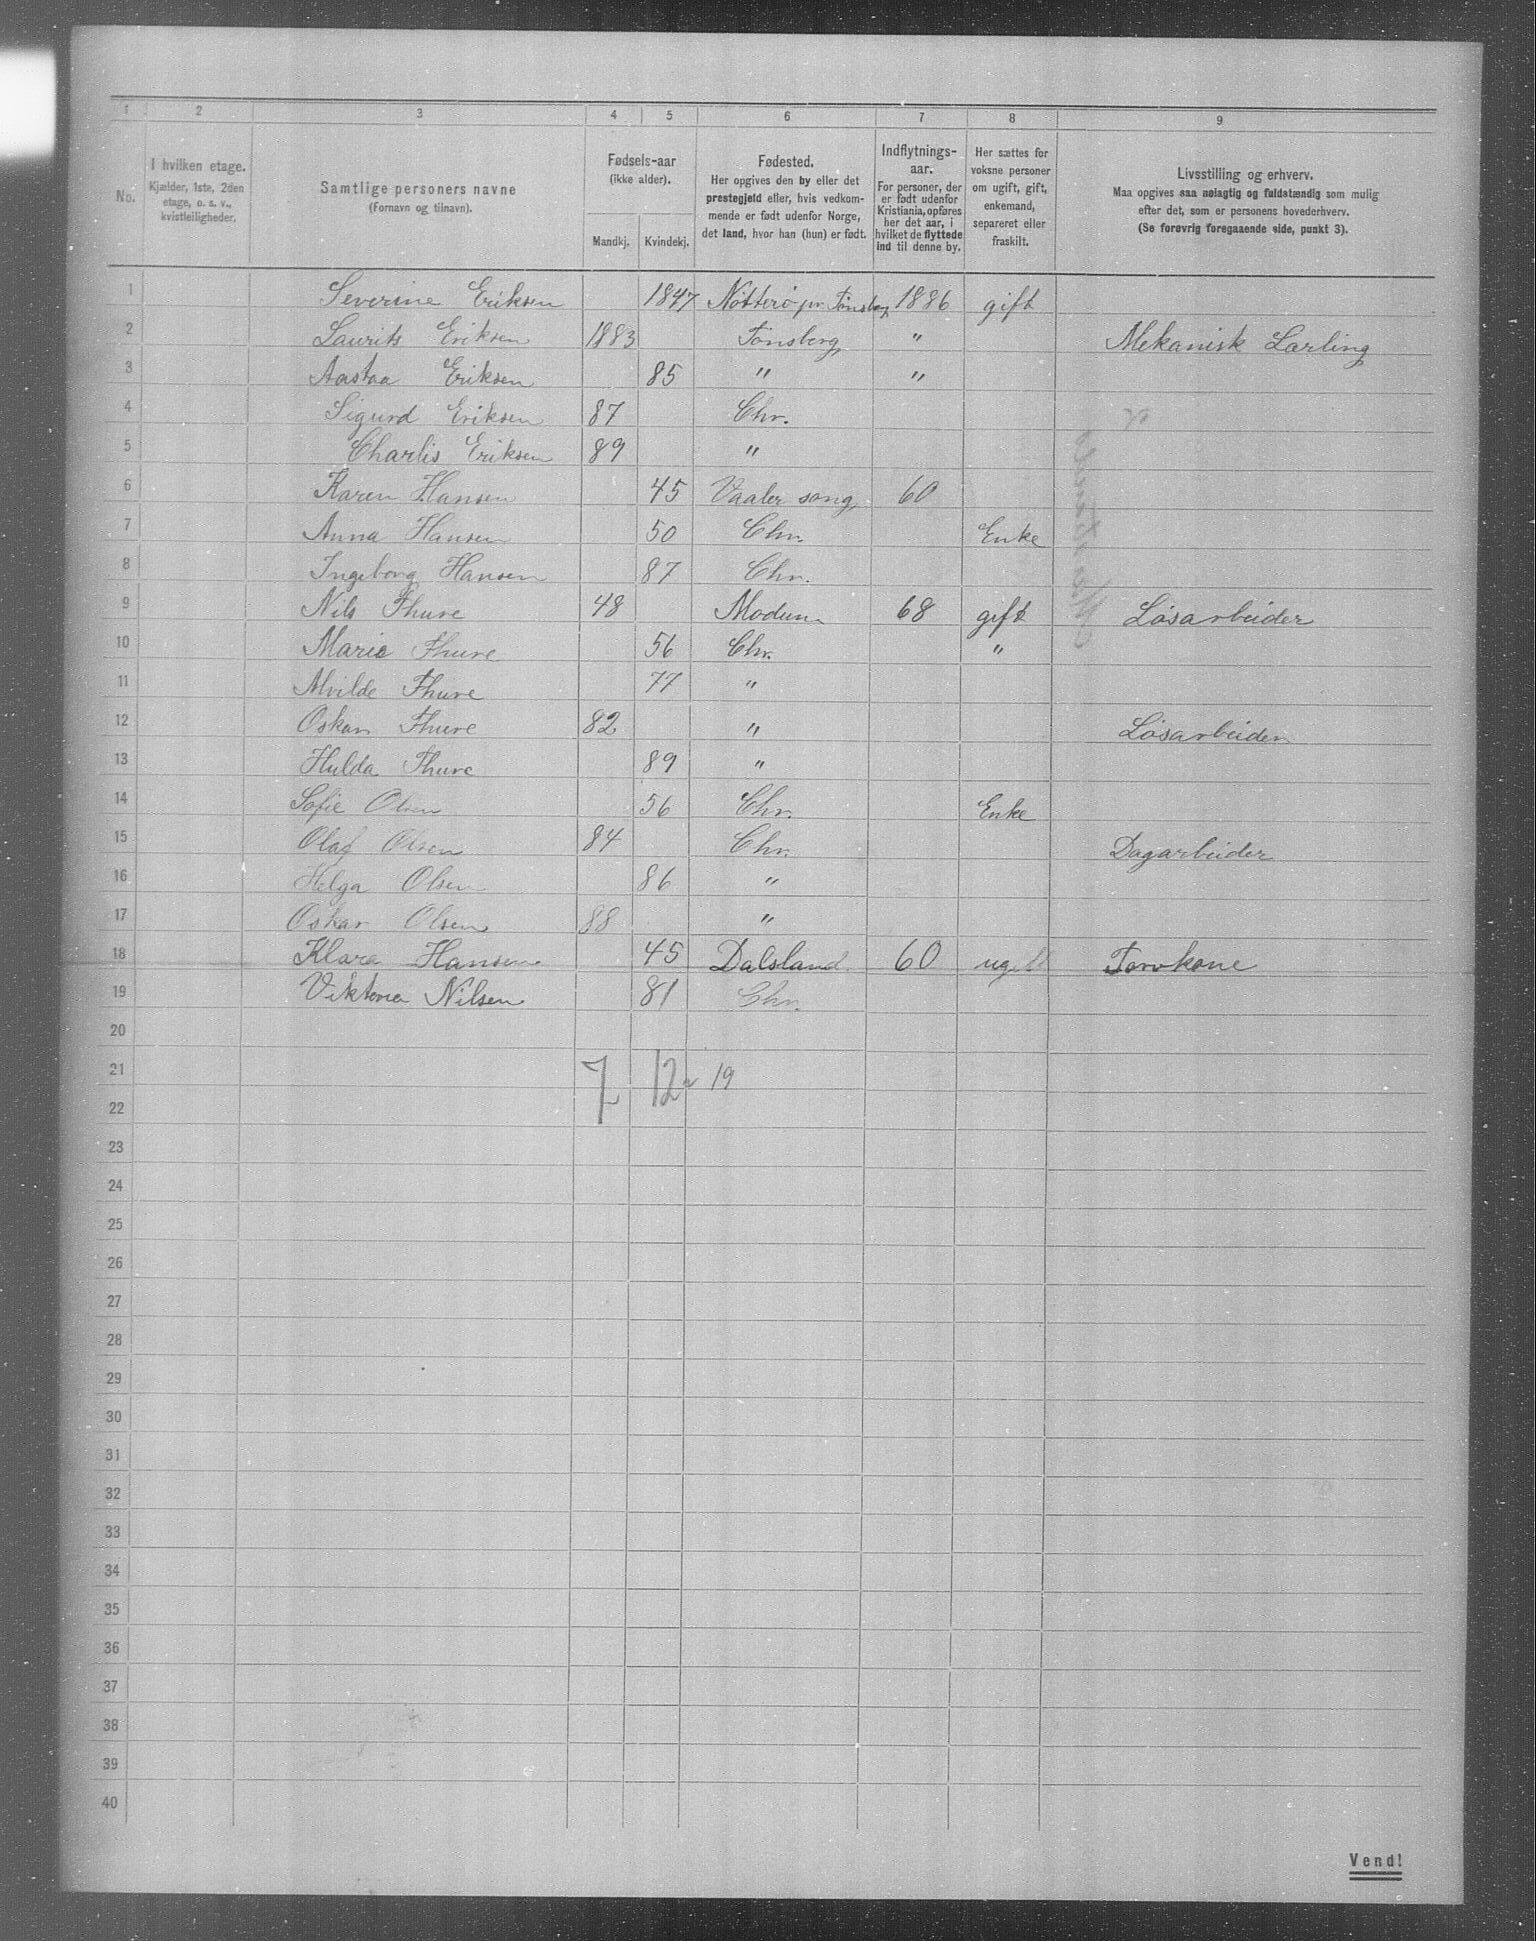 1 2 3 4 5 6 7 8 9
No.
I hvilken etage.
Kjælder, 1ste, 2den
etage, o. s. v.,
kvistleiligheder.
Samtlige personers navne
(Fornavn og tilnavn).
Fødsels-aar
(ikke alder).
Mandkj. Kvindekj.
Fødested.
Her opgives den by eller det
prestegjeld eller, hvis vedkom-
mende er født udenfor Norge,
det land, hvor han (hun) er født.
Indflytnings-
aar.
For personer, der
er født udenfor
Kristiania, opføres
her det aar, i
hvilket de flyttede
ind til denne by.
Her sættes for
voksne personer
om ugift, gift,
enkemand,
separeret eller
fraskilt.
Livsstilling og erhverv.
Maa opgives saa nøiagtig og fuldstændig som mulig
efter det, som er personens hovederhverv.
(Se forøvrig foregaaende side, punkt 3).
1 Severine Eriksen 1847 Nötterö pr. Tönsberg 1886 gift
2 Laurits Eriksen 1883 Tönsberg " Mekanisk Larling
3 Aastaa Eriksen 85 " "
4 Sigurd Eriksen 87 Chr.
5 Charlis Eriksen 89 "
6 Karen Hansen 45 Vaaler song 60
7 Anna Hansen 50 Chr. Enke
8 Ingeborg Hansen 87 Chr.
9 Nils Thure 48 Modum 68 gift Løsarbeider
10 Marie Thure 56 Chr. "
11 Alvilde Thure 77 "
12 Oskar Thure 82 " Løsarbeider
13 Hulda Thure 89 "
14 Sofie Olsen 56 Chr. Enke
15 Olaf Olsen 84 Chr. Dagarbeider
16 Helga Olsen 86 "
17 Oskar Olsen 88 "
18 Klara Hansen 45 Dalsland 60 ugift Torvkone
19 Viktoria Nilsen 81 Chr.
20
21 7 12 19
22
23
24
25
26
27
28
29
30
31
32
33
34
35
36
37
38
39
40
Vend!